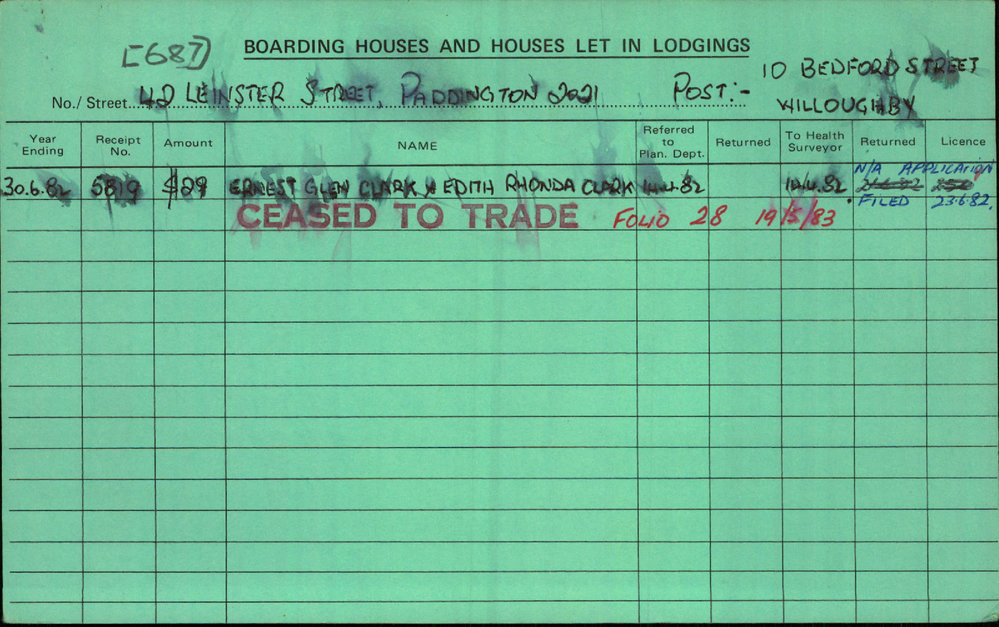 [687]
BOARDING HOUSES AND HOUSES LET IN LODGINGS
10 BEDFORD STREET
No./ Street. 42 LEINSTER STREET, PADDINGTON 2021 POST:-
WILLOUGHBY
Year Ending Receipt No. Amount NAME Referred to Plan. Dept. Returned To Health Surveyor Returned Licence
N/A APPLICATION
30.6.82 5819 $29 ERNEST GLEN CLARK & EDITH RHONDA CLARK 14.4.82 14.4.82
FILED 23.6.82.
CEASED TO TRADE FOLIO 28 19/5/83